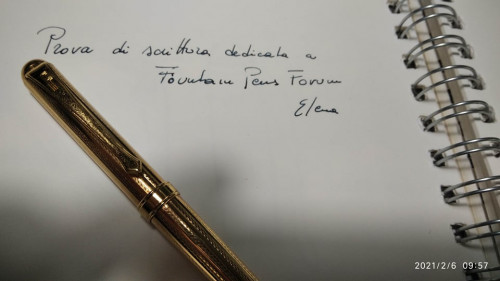 Prova di scrittura dedicata a
Fountain Pens Forum
Elena
2021/2/6 09:57